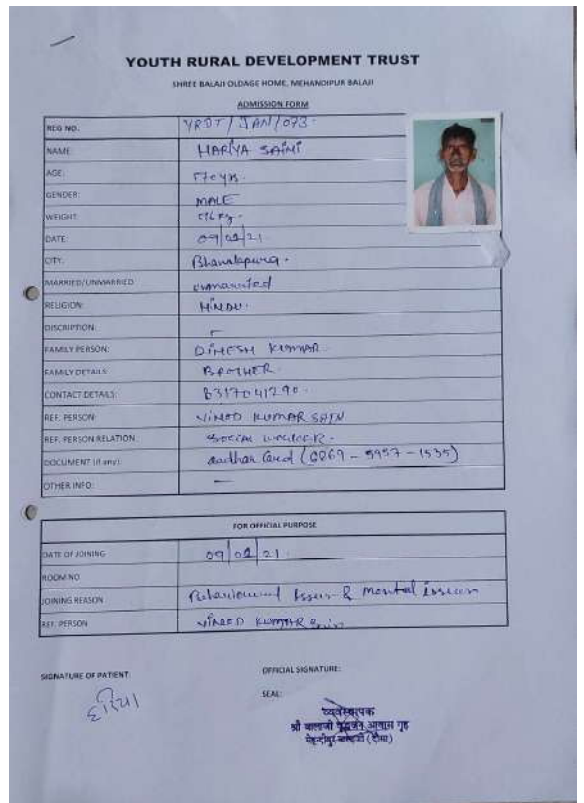 YOUTH RURAL DEVELOPMENT TRUST
SHREE BALAJI OLDAGE HOME, MEHANDIPUR BALAJI
ADMISSION FORM
REG NO. YRDT/JAN/073.
NAME: HARIYA SAINI
AGE:
GENDER: MALE
WEIGHT:
DATE: 09/02/21
CITY:
MARRIED/UNMARRIED unmarried
RELIGION: HINDU.
DISCRIPTION:
FAMILY PERSON: DINESH KUMAR
FAMILY DETAILS: BROTHER.
CONTACT DETAILS: 8317041290.
REF. PERSON: VINOD KUMAR
REF. PERSON RELATION: SOCIAL WORKER.
DOCUMENT (if any): aadhar Card
OTHER INFO: —
FOR OFFICIAL PURPOSE
DATE OF JOINING 09/02/21.
ROOM NO
JOINING REASON Behavioural Issues & mental issues
REF. PERSON VINOD KUMAR
SIGNATURE OF PATIENT:
OFFICIAL SIGNATURE:
हरिया
SEAL:
व्यवस्थापक
श्री बालाजी वृद्धजन आवास गृह
(दौसा)